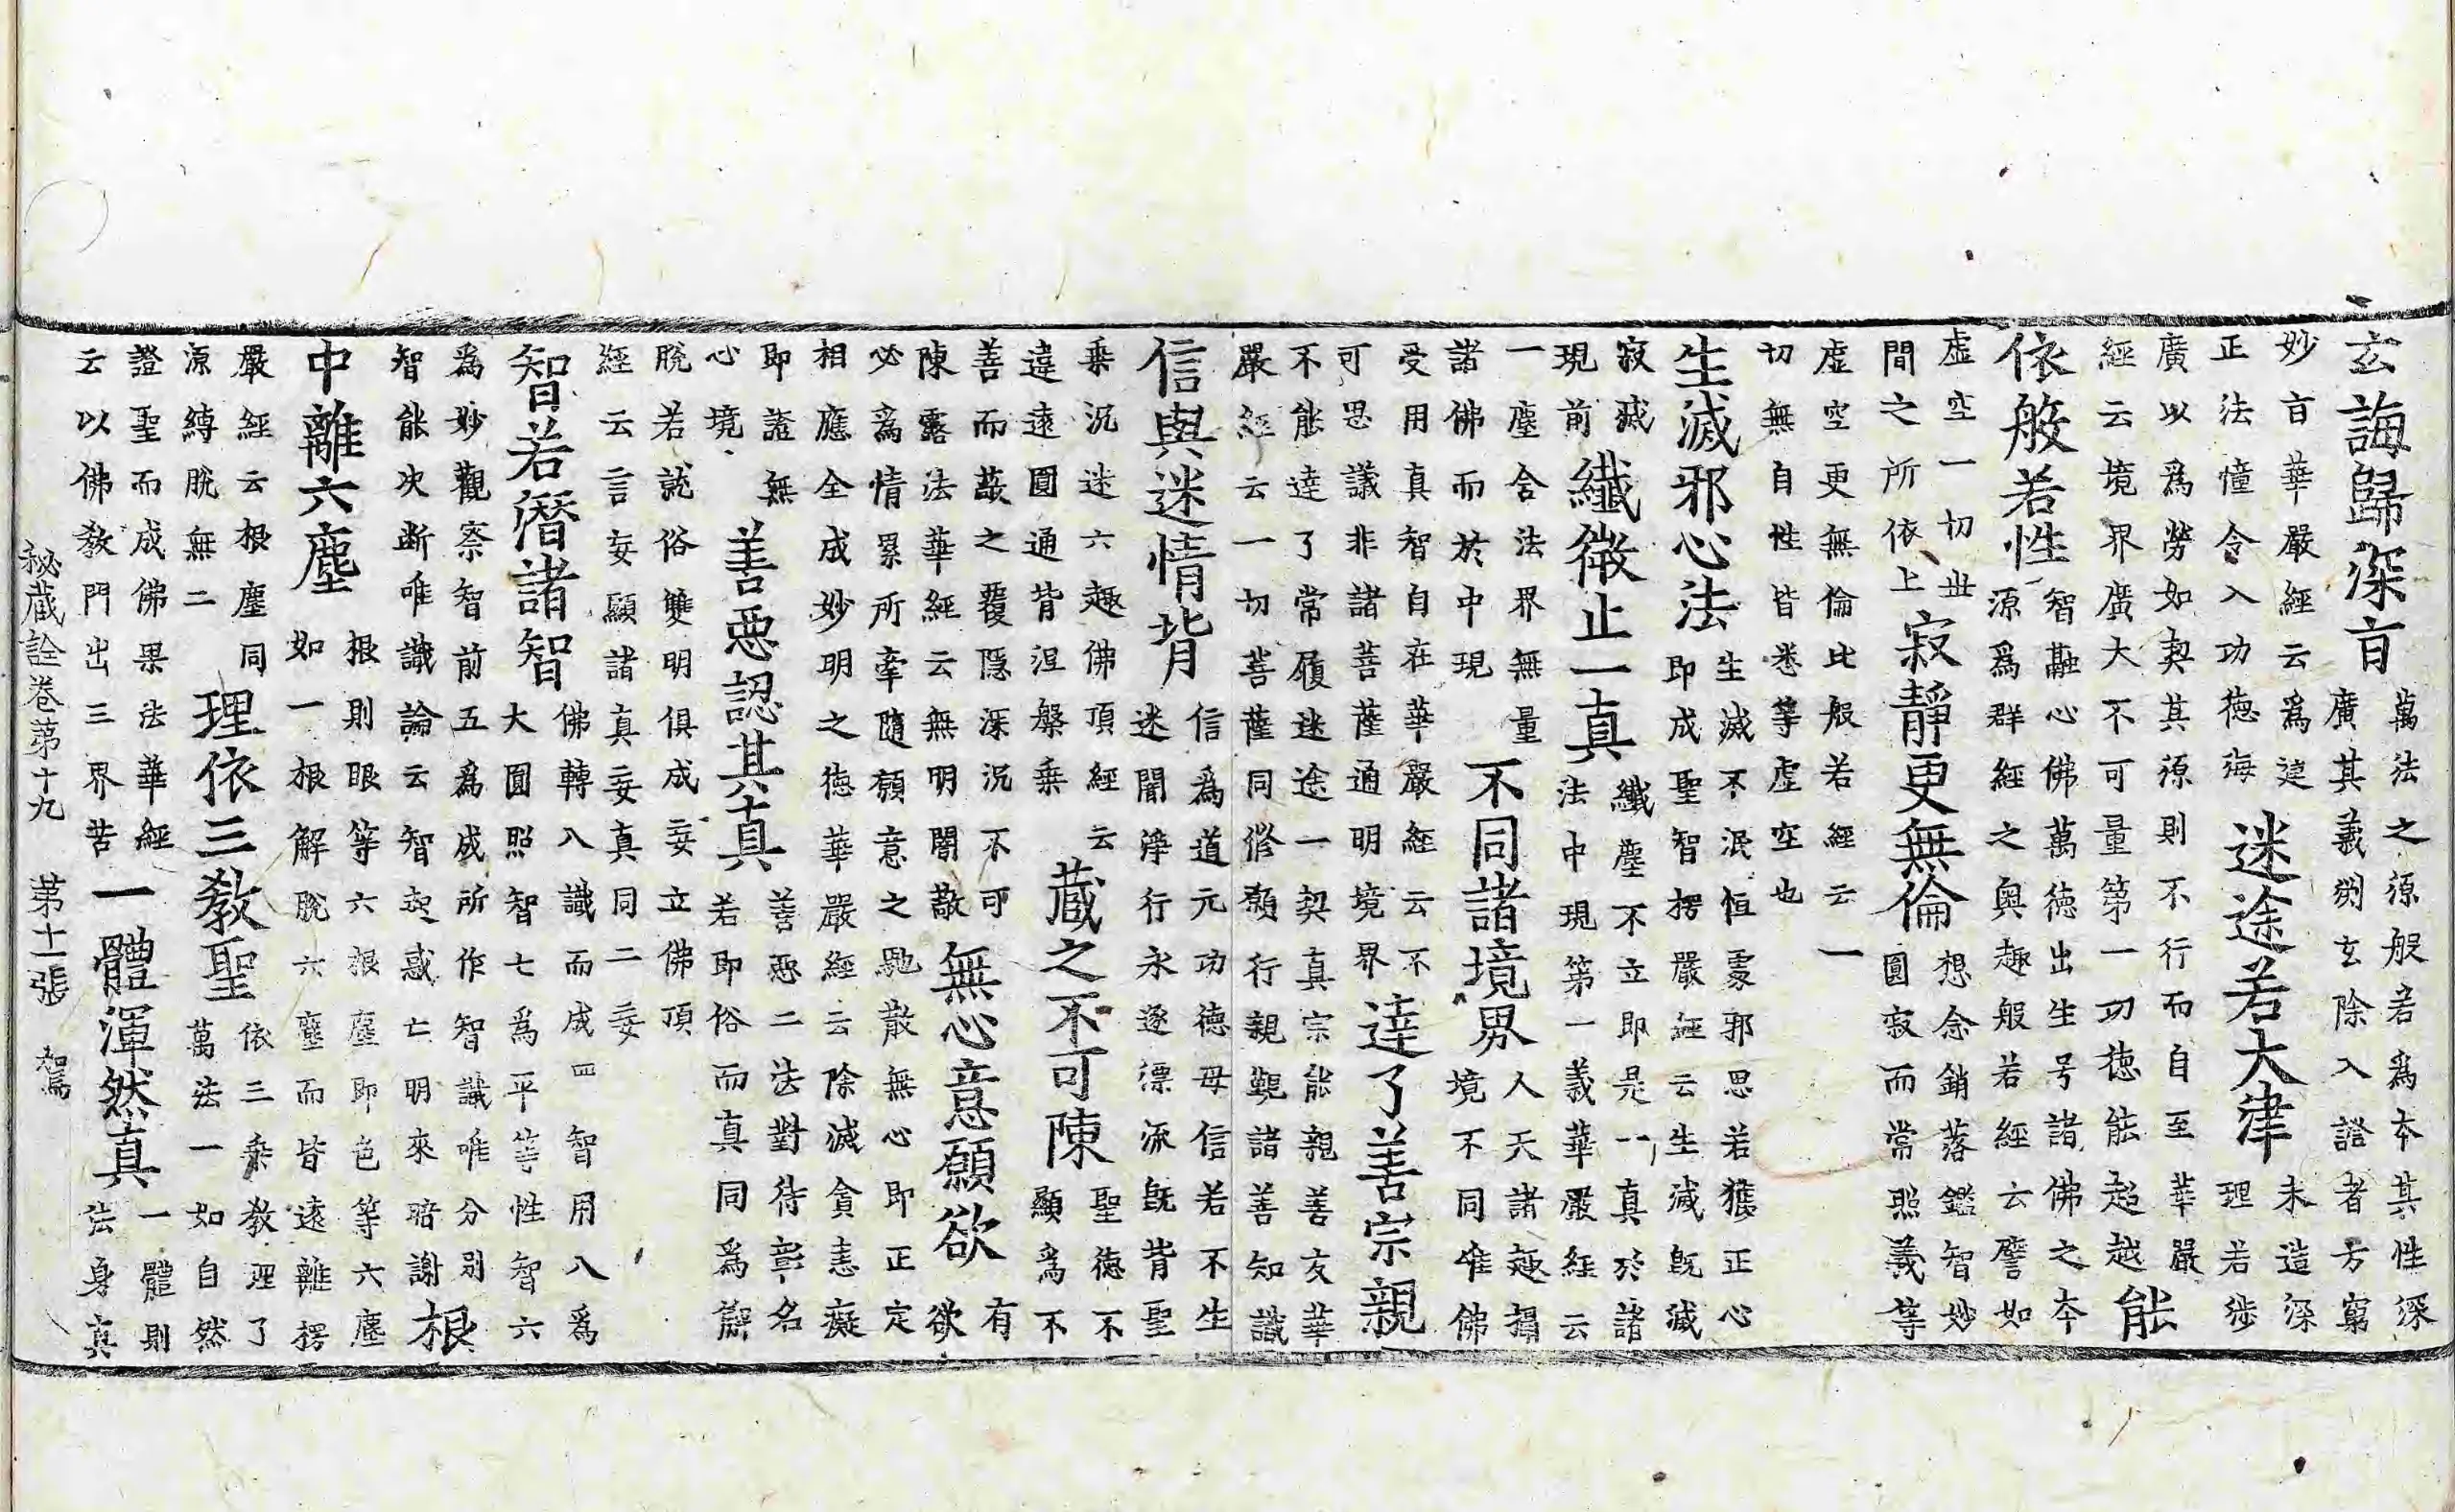 玄誨歸深㫖
萬法之源般若爲本其性深
廣其義淵玄除入證者方窮
妙㫖華嚴經云爲建
正法憧令入功德海
迷途若大津
未造深
理若涉
廣以爲勞如契其源則不行而自至華嚴
經云境界廣大不可量第一功德能超越
能
依般若性
智融心佛萬德出生号諸佛之本
源爲群經之奧趣般若經云譬如
虛空一切丗
間之所依上
寂靜更無倫
想念銷落鑑智妙
圓寂而常照義等
虛空更無倫比般若經云一
切無自性皆悉等虛空也
生滅邪心法
生滅不泯恒處邪思若獲正心
即成聖智楞嚴經云生滅既滅
寂滅
現前
纖微止一真
纖塵不立即是一真於諸
法中現第一義華嚴經云
一塵含法界無量
諸佛而於中現
不同諸境界
人天諸趣攝
境不同唯佛
受用真智自在華嚴經云不
可思議非諸菩薩通明境界
達了善宗親
不能達了常履迷途一契真宗能親善友華
嚴經云一切菩薩同修願行親覲諸善知識
信與迷情背
信爲道元功德母信若不生
迷闇淨行永逐漂流既背聖
乘沉迷六趣佛頂經云
違遠圓通背涅槃乘
藏之不可陳
聖德不
顯爲不
善而蔽之覆隱深沉不可
陳露法華經云無明闇蔽
無心意願欲
有
欲
必爲情累所牽隨願意之馳散無心即正定
相應全成妙明之德華嚴經云除滅貪恚癡
即證無
心境
善惡認其真
善惡二法對待彰名
若即俗而真同爲解
脫若説俗雙明俱成妄立佛頂
經云言妄顯諸真妄真同二妄
智若潛諸智
佛轉八識而成四智用八爲
大圓照智七爲平等性智六
爲妙觀察智前五爲成所作智識唯分別
智能决断唯識論云智起惑亡明來暗謝
根
中離六塵
根則眼等六根塵即色等六塵
如一根解脫六塵而皆遠離楞
嚴經云根塵同
源縛脫無二
理依三教聖
依三乘教理了
萬法一如自然
證聖而成佛果法華經
云以佛教門出三界苦
一體渾然真
一體則
法身真
秘藏詮卷第十九 第十一張 駕